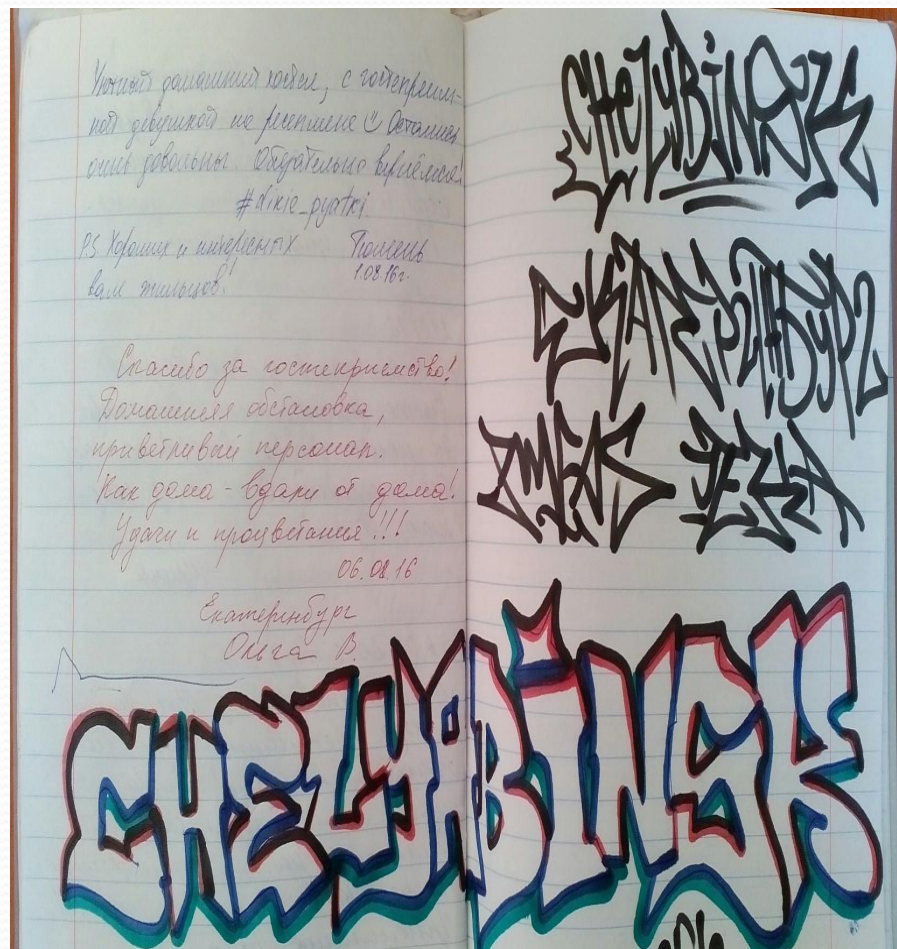 Уютный домашний хостел, с гостеприим-
ной девушкой на ресепшене Остались
очень довольны. Обязательно вернёмся!
#dikie_pyatki
PS Хороших и интересных
вам жильцов!
Тюмень
1.08.16г.
Спасибо за гостеприемство!
Домашняя обстановка,
приветливый персонал.
Как дома - вдали от дома!
Удачи и процветания!!!
06.08.16
Екатеринбург
Ольга В.
CHELYABINSK